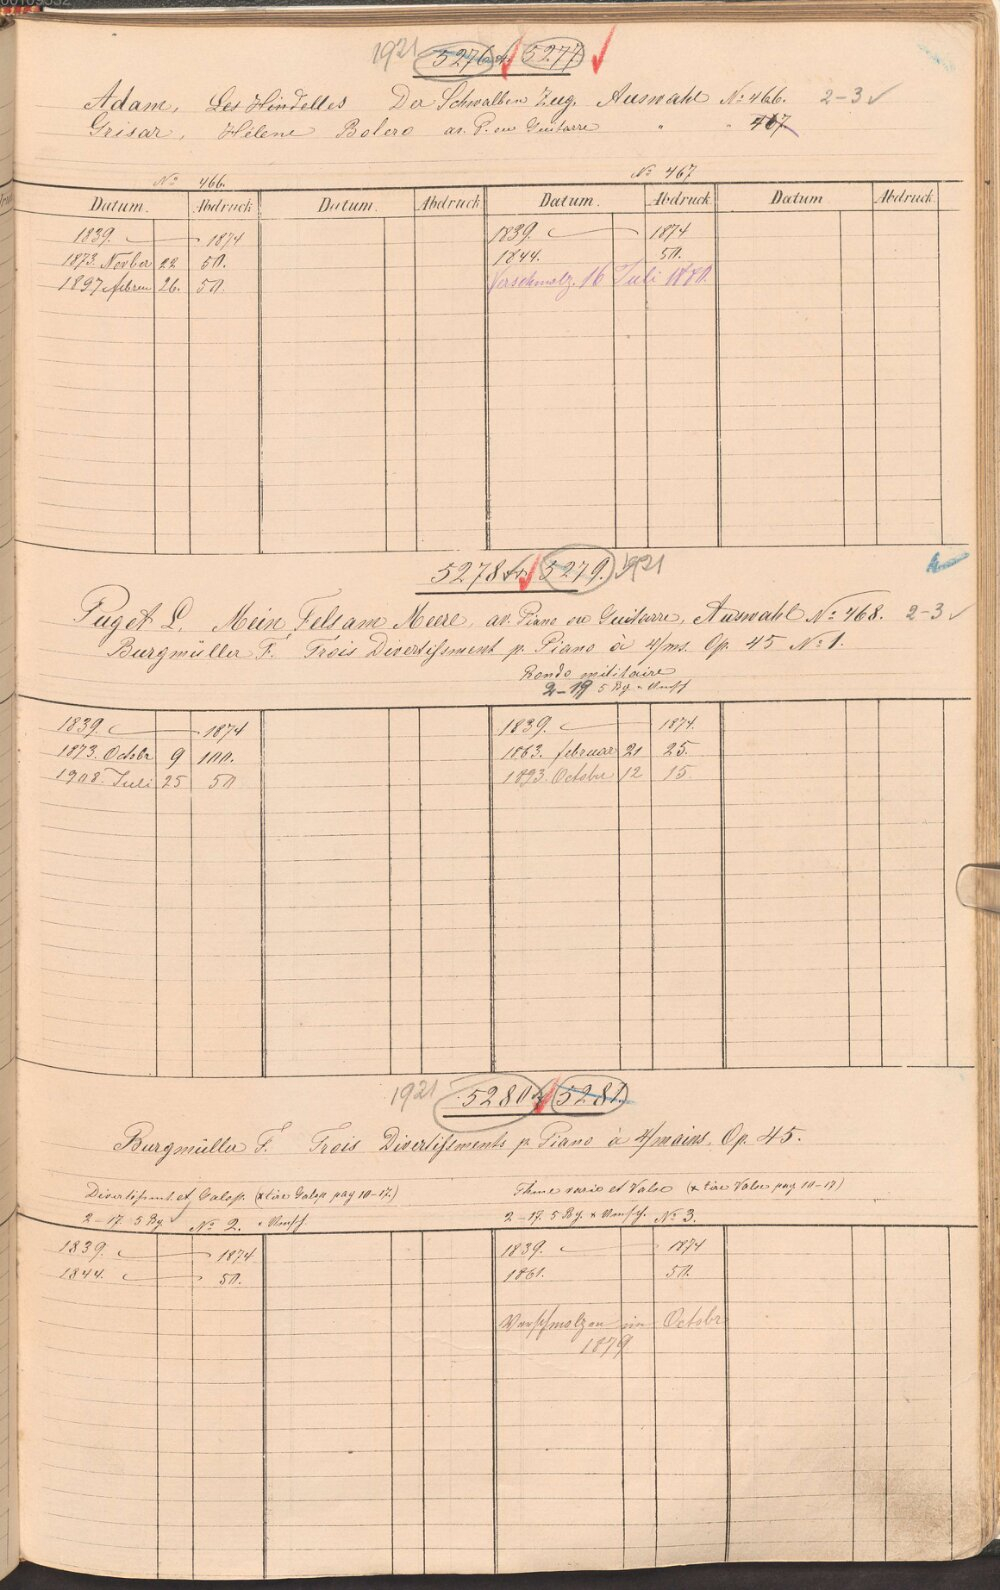 1921 5276 5277
Adam, Les Hirondelles Der Schwalben Zug, Auswahl No 466. 2-3
Grisar, Hélène Bolero av. P. ou Guitarre " " 467
No 466. No 467
Datum. Abdruck Datum. Abdruck Datum. Abdruck Datum Abdruck
1839. 1874 1839. 1874
1873. Novber 22 50. 1844. 50.
1897 febru 26. 50. Verschmolz. 16 Juli 1880.
5278 5279. 1921
Puget L. Mein Fels am Meere, av. Piano ou Guitarre, Auswahl No 468. 2-3
Burgmüller F. Trois Divertissment p. Piano à 4/ms. Op. 45 No 1.
Rondo militaire
2-19 5 Bg
1839. 1874 1839. 1874.
1873. Octobr 9 100. 1863. februar 21 25.
1908. Juli 25 50 1893. Octobr 12 15.
1921 5280 5281.
Burgmüller F. Trois Divertissments p. Piano à 4/mains, Op. 45.
Divertissmt. et Galop. Galop pag 10-17.) Thème varié et Valse Valse pag 10-17)
2-17. 5 Bg No 2. 2-17. 5 Bg. No 3.
1839. 1874 1839. 1874
1844. 50. 1861. 50.
Verschmolzen im Octobr
1879